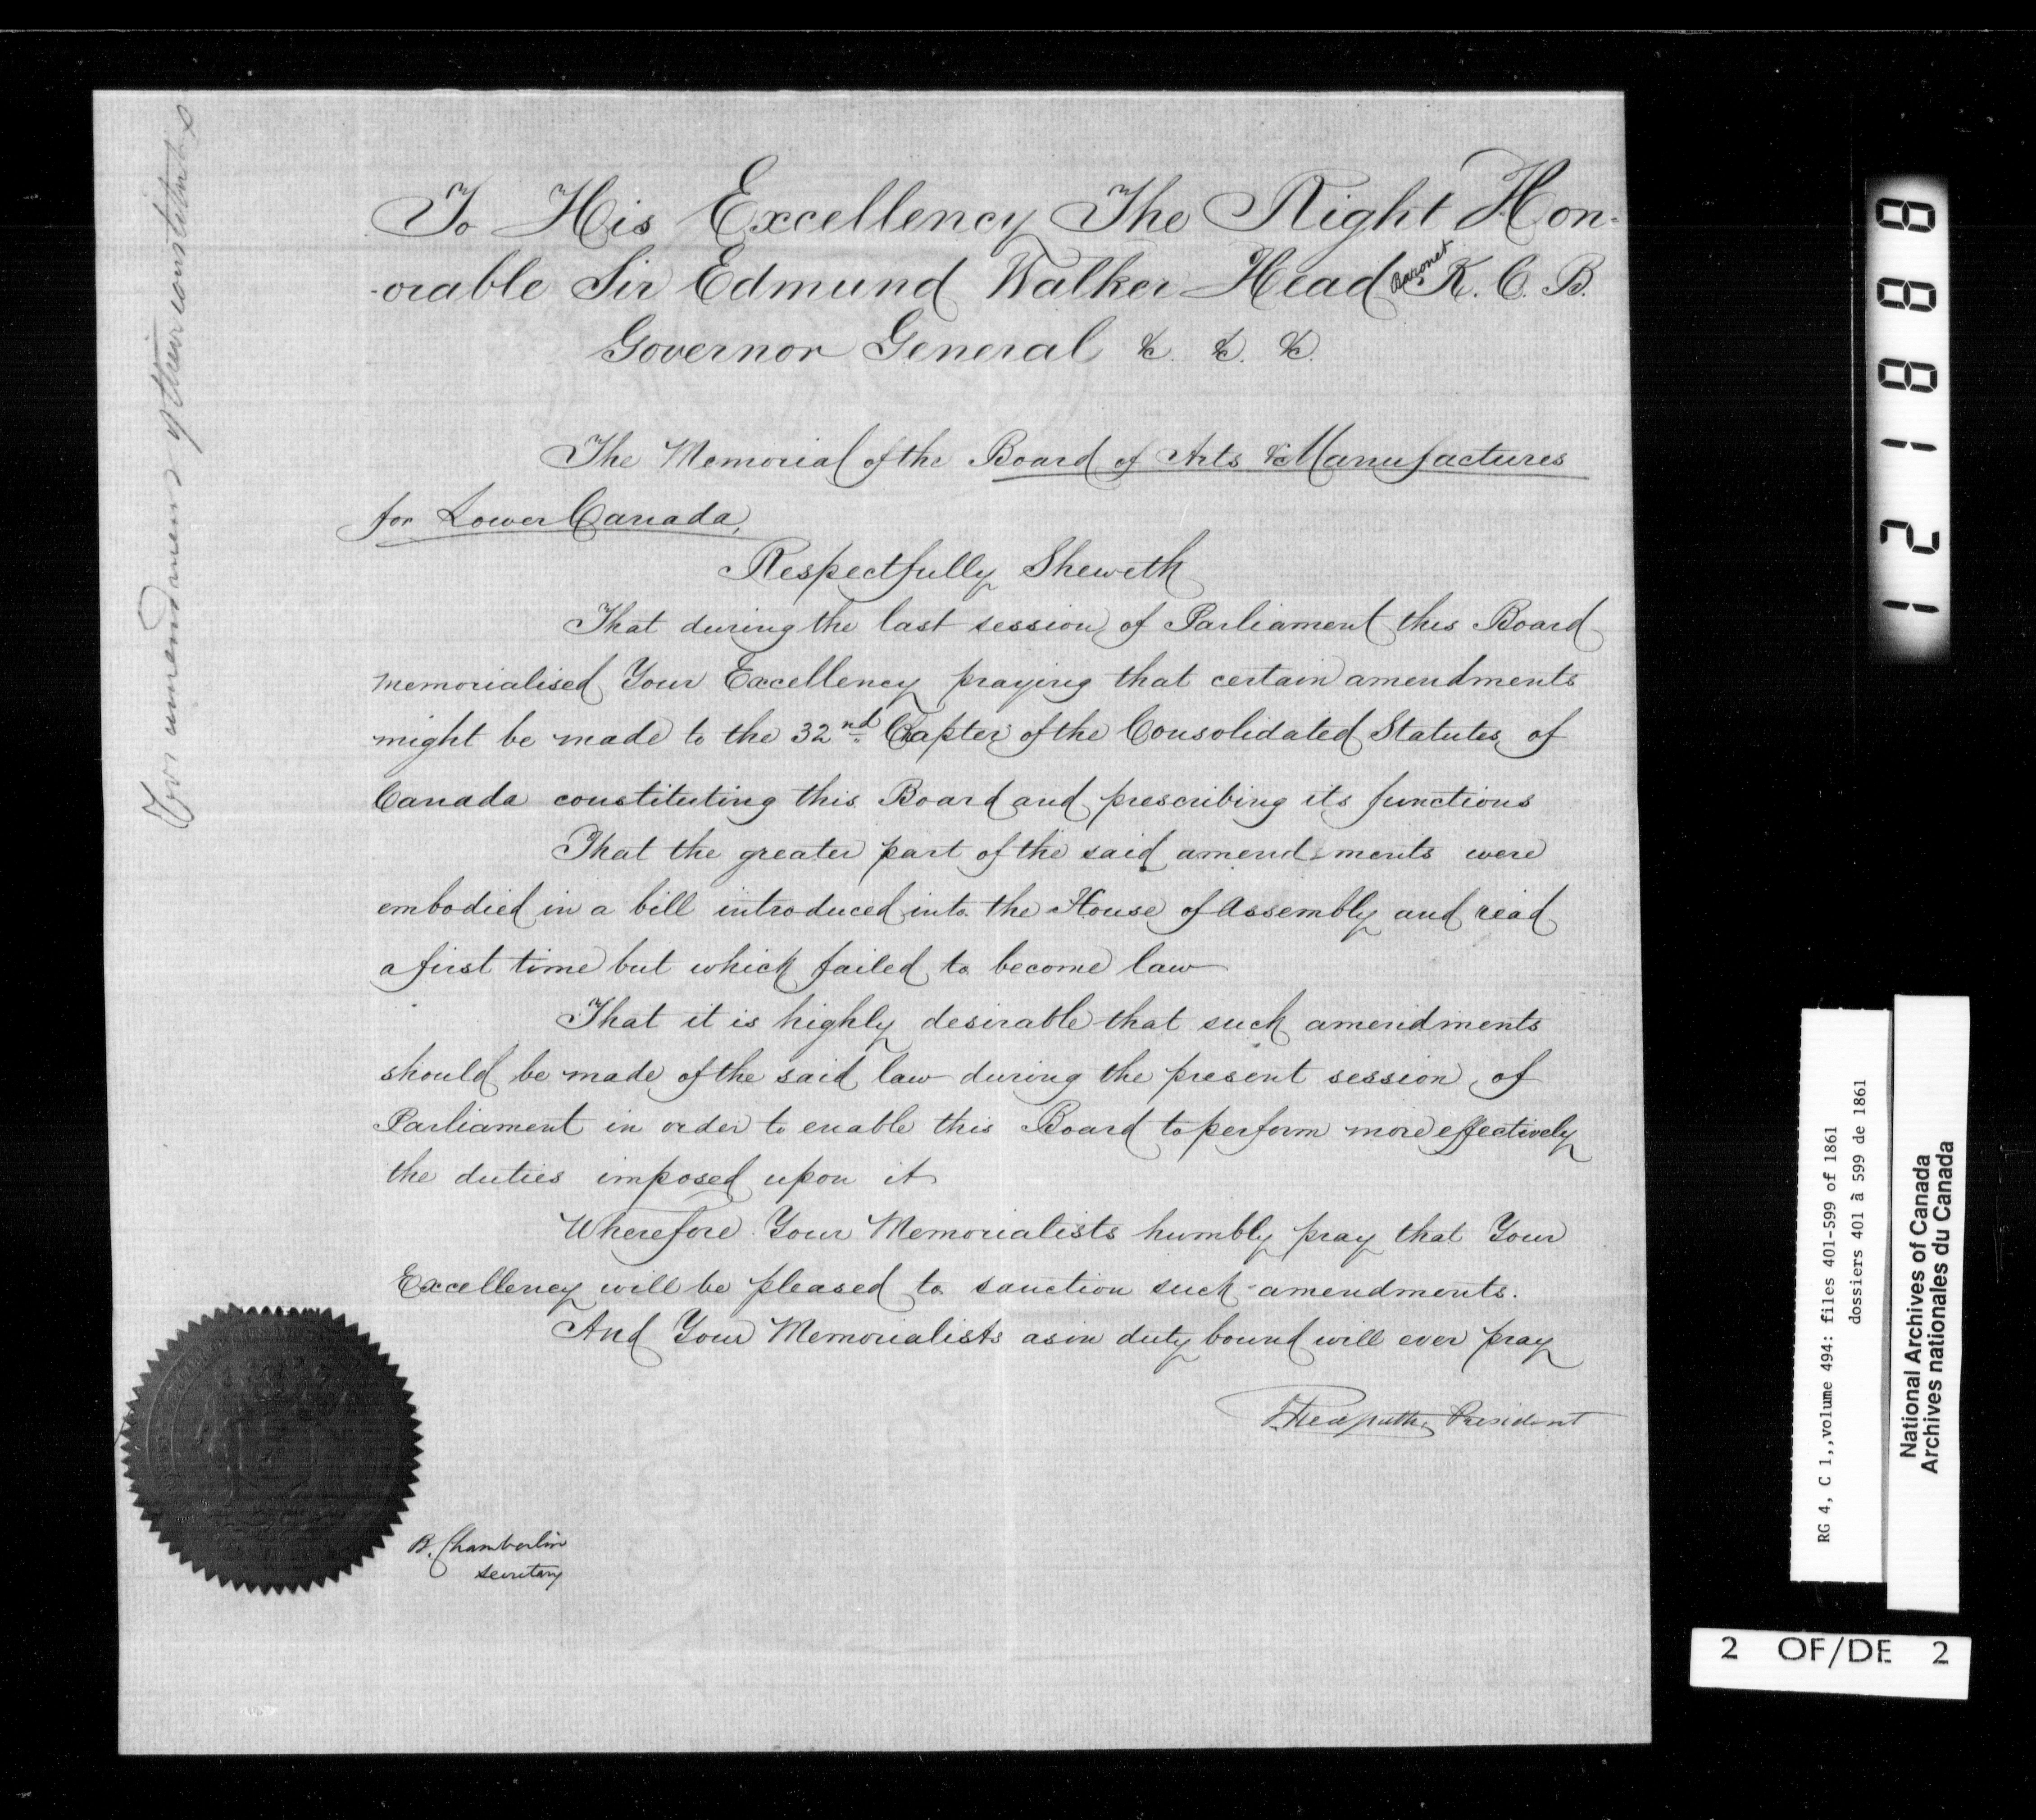 To His Excellency The Right Hon-
-orable Sir Edmund Walker Head Baronet K. C. B.
Governor General &c. &c. &c.
The Memorial of the Board of Arts & Manufactures
for Lower Canada,
Respectfully Sheweth
That during the last session of Parliament this Board
memorialised Your Excellency praying that certain amendments
might be made to the 32nd Chapter of the Consolidated Statutes of
Canada constituting this Board and prescribing its functions
That the greater part of the said amend-ments were
embodied in a bill introduced into the House of Assembly and read
a first time but which failed to become law
That it is highly desirable that such amendments
should be made of the said law during the present session of
Parliament in order to enable this Board to perform more effectively
the duties imposed upon it
Wherefore Your Memorialists humbly pray that Your
Excellency will be pleased to sanction such amendments.
And Your Memorialists as in duty bound will ever pray
Redpath President
B. Chamberlin
Secretary
For amendment of their constitution
121888
RG 4, C 1,,volume 494: files 401-599 of 1861
dossiers 401 à 599 de 1861
National Archives of Canada
Archives nationales du Canada
2 OF/DE 2